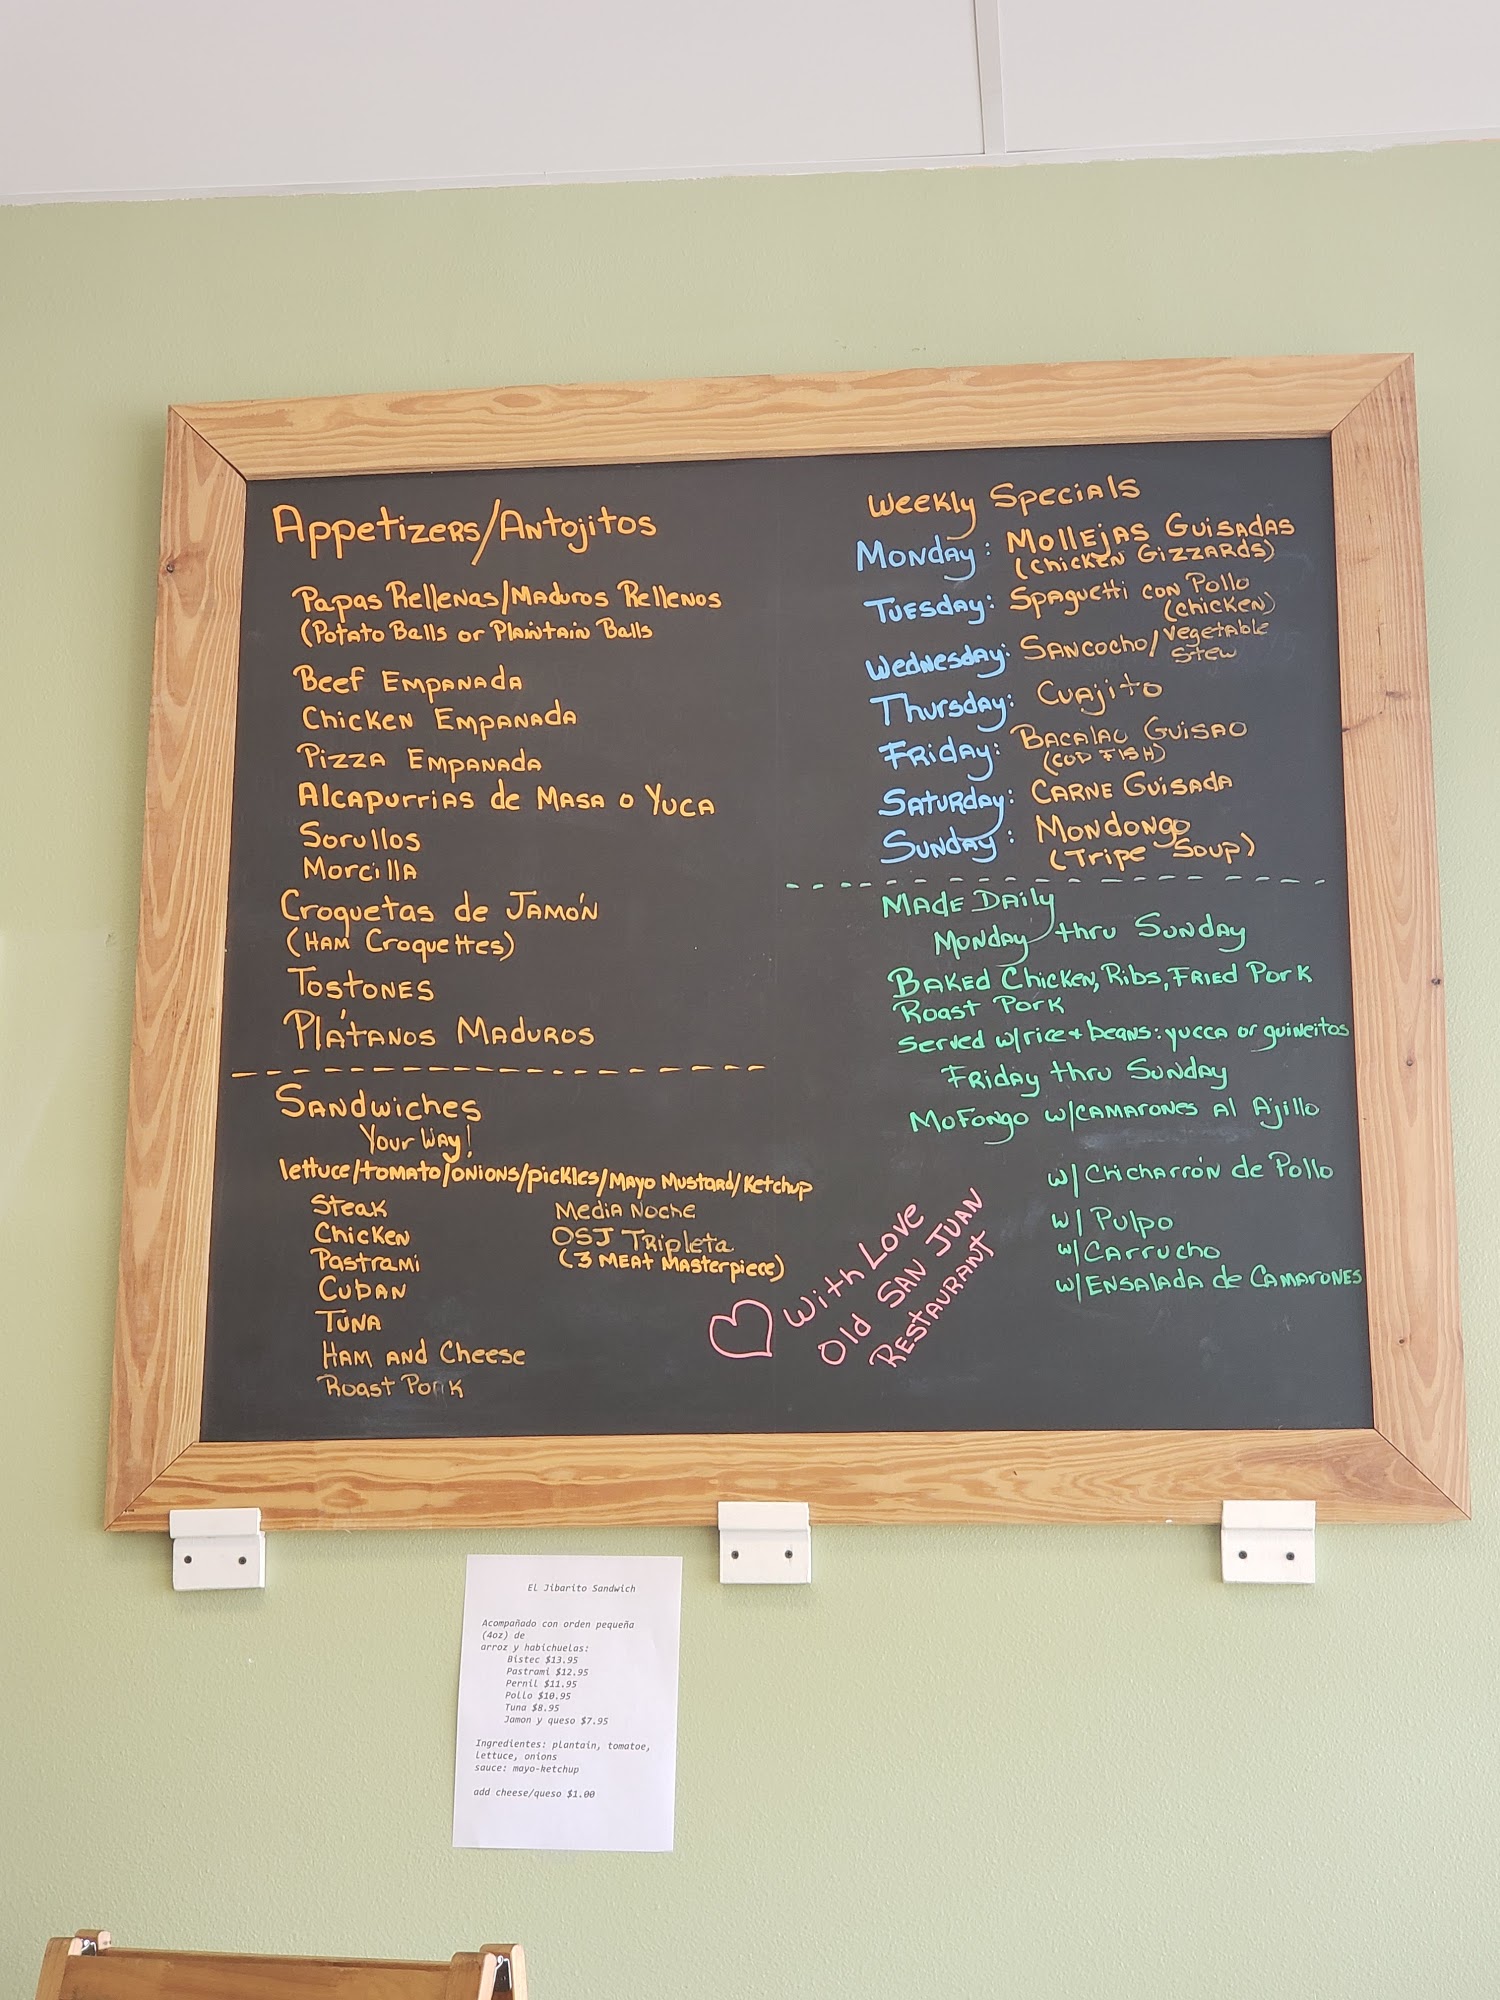 Appetizers/Antojitos
Papas Rellenas/Maduros Rellenos
(Potato Balls or Plaintain Balls
Beef Empanada
Chicken Empanada
Pizza Empanada
Alcapurrias de Masa o Yuca
Sorullos
Morcilla
Croquetas de Jamón
(Ham Croquettes)
Tostones
Plátanos Maduros
Sandwiches
Your Way!
lettuce/tomato/onions/pickles/Mayo Mustard/Ketchup
Steak
Chicken
Pastrami
Cuban
Tuna
Ham and Cheese
Roast Pork
Media Noche
OSJ Tripleta
(3 Meat Masterpiece)
Weekly Specials
Monday: Mollejas Guisadas
(Chicken Gizzards)
Tuesday: Spaguetti con Pollo
(chicken)
Wednesday: Sancocho/Vegetable
Stew
Thursday: Cuajito
Friday: Bacalao Guisao
(Cod Fish)
Saturday: Carne Guisada
Sunday: Mondongo
(Tripe Soup)
Made Daily
Monday thru Sunday
Baked Chicken, Ribs, Fried Pork
Roast Pork
Served w/rice + beans: yucca or guineitos
Friday thru Sunday
Mofongo w/camarones al Ajillo
w/Chicharrón de Pollo
w/Pulpo
w/Carrucho
w/Ensalada de Camarones
With Love
Old San Juan
Restaurant
El Jibarito Sandwich
Acompañado con orden pequeña
(4oz) de
arroz y habichuelas:
Bistec $13.95
Pastrami $12.95
Pernil $11.95
Pollo $10.95
Tuna $8.95
Jamon y queso $7.95
Ingredientes: plantain, tomatoe,
lettuce, onions
sauce: mayo-ketchup
add cheese/queso $1.00